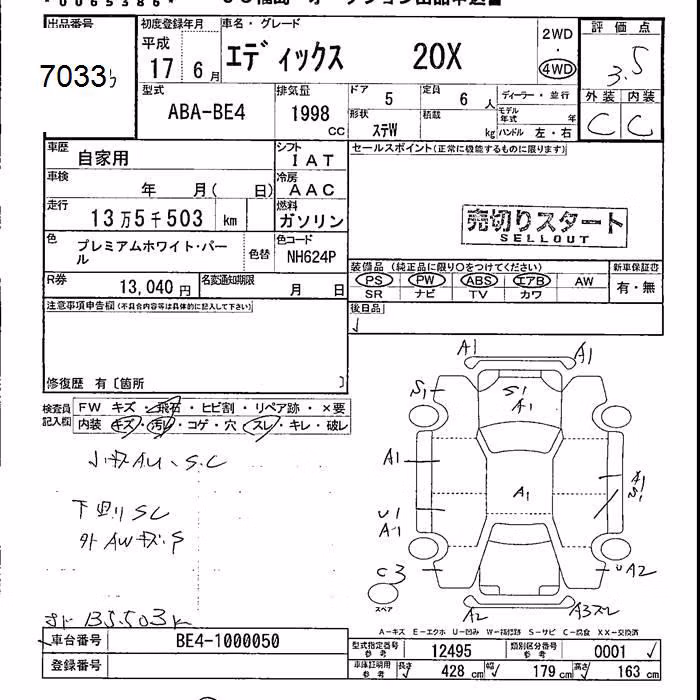 0065386
出品番号
7033
初度登録年月
平成
17 6月
車名・グレード
エディックス 20X
2WD
・
4WD
評価点
3.5
外装 内装
C C
型式
ABA-BE4
排気量
1998
CC
ドア
5
定員
6人
ディーラー・並行
形状
ステW
積載
kg
モデル年式
年
ハンドル 左・右
車歴
自家用
シフト
IAT
セールスポイント(正常に機能するものに限ります)
車検
年 月( 日)
冷房
AAC
走行
13万5千503 km
燃料
ガソリン
売切りスタート
SELLOUT
色
プレミアムホワイト・パール
色替
色コード
NH624P
装備品 (純正品に限り○をつけてください)
新車保証書
PS PW ABS エアB AW
SR ナビ TV カワ
有・無
R券
13,040 円
名変通知期限
月 日
後日品
注意事項申告欄(不具合内容等は具体的に記入して下さい)
修復歴 有〔箇所 〕
検査員記入欄
FW キズ・飛石・ヒビ割・リペア跡・×要
内装 キズ・汚レ・コゲ・穴・スレ・キレ・破レ
小キズAU、S.C
下回りSC
外AWキズ.S
135.503K
A1 A1
S1
S1
A1
A1
A1
A1
S1
U1
A1
C3
スペア
UA2
A2
A3スレ
A-キズ E-エクボ U-凹み W-補修跡 S-サビ C-腐食 XX-交換済
車台番号
BE4-1000050
登録番号
型式指定番号
参考
12495
類別区分番号
参考
0001
車庫証明用
参考
長さ 428 cm 幅 179 cm 高さ 163 cm